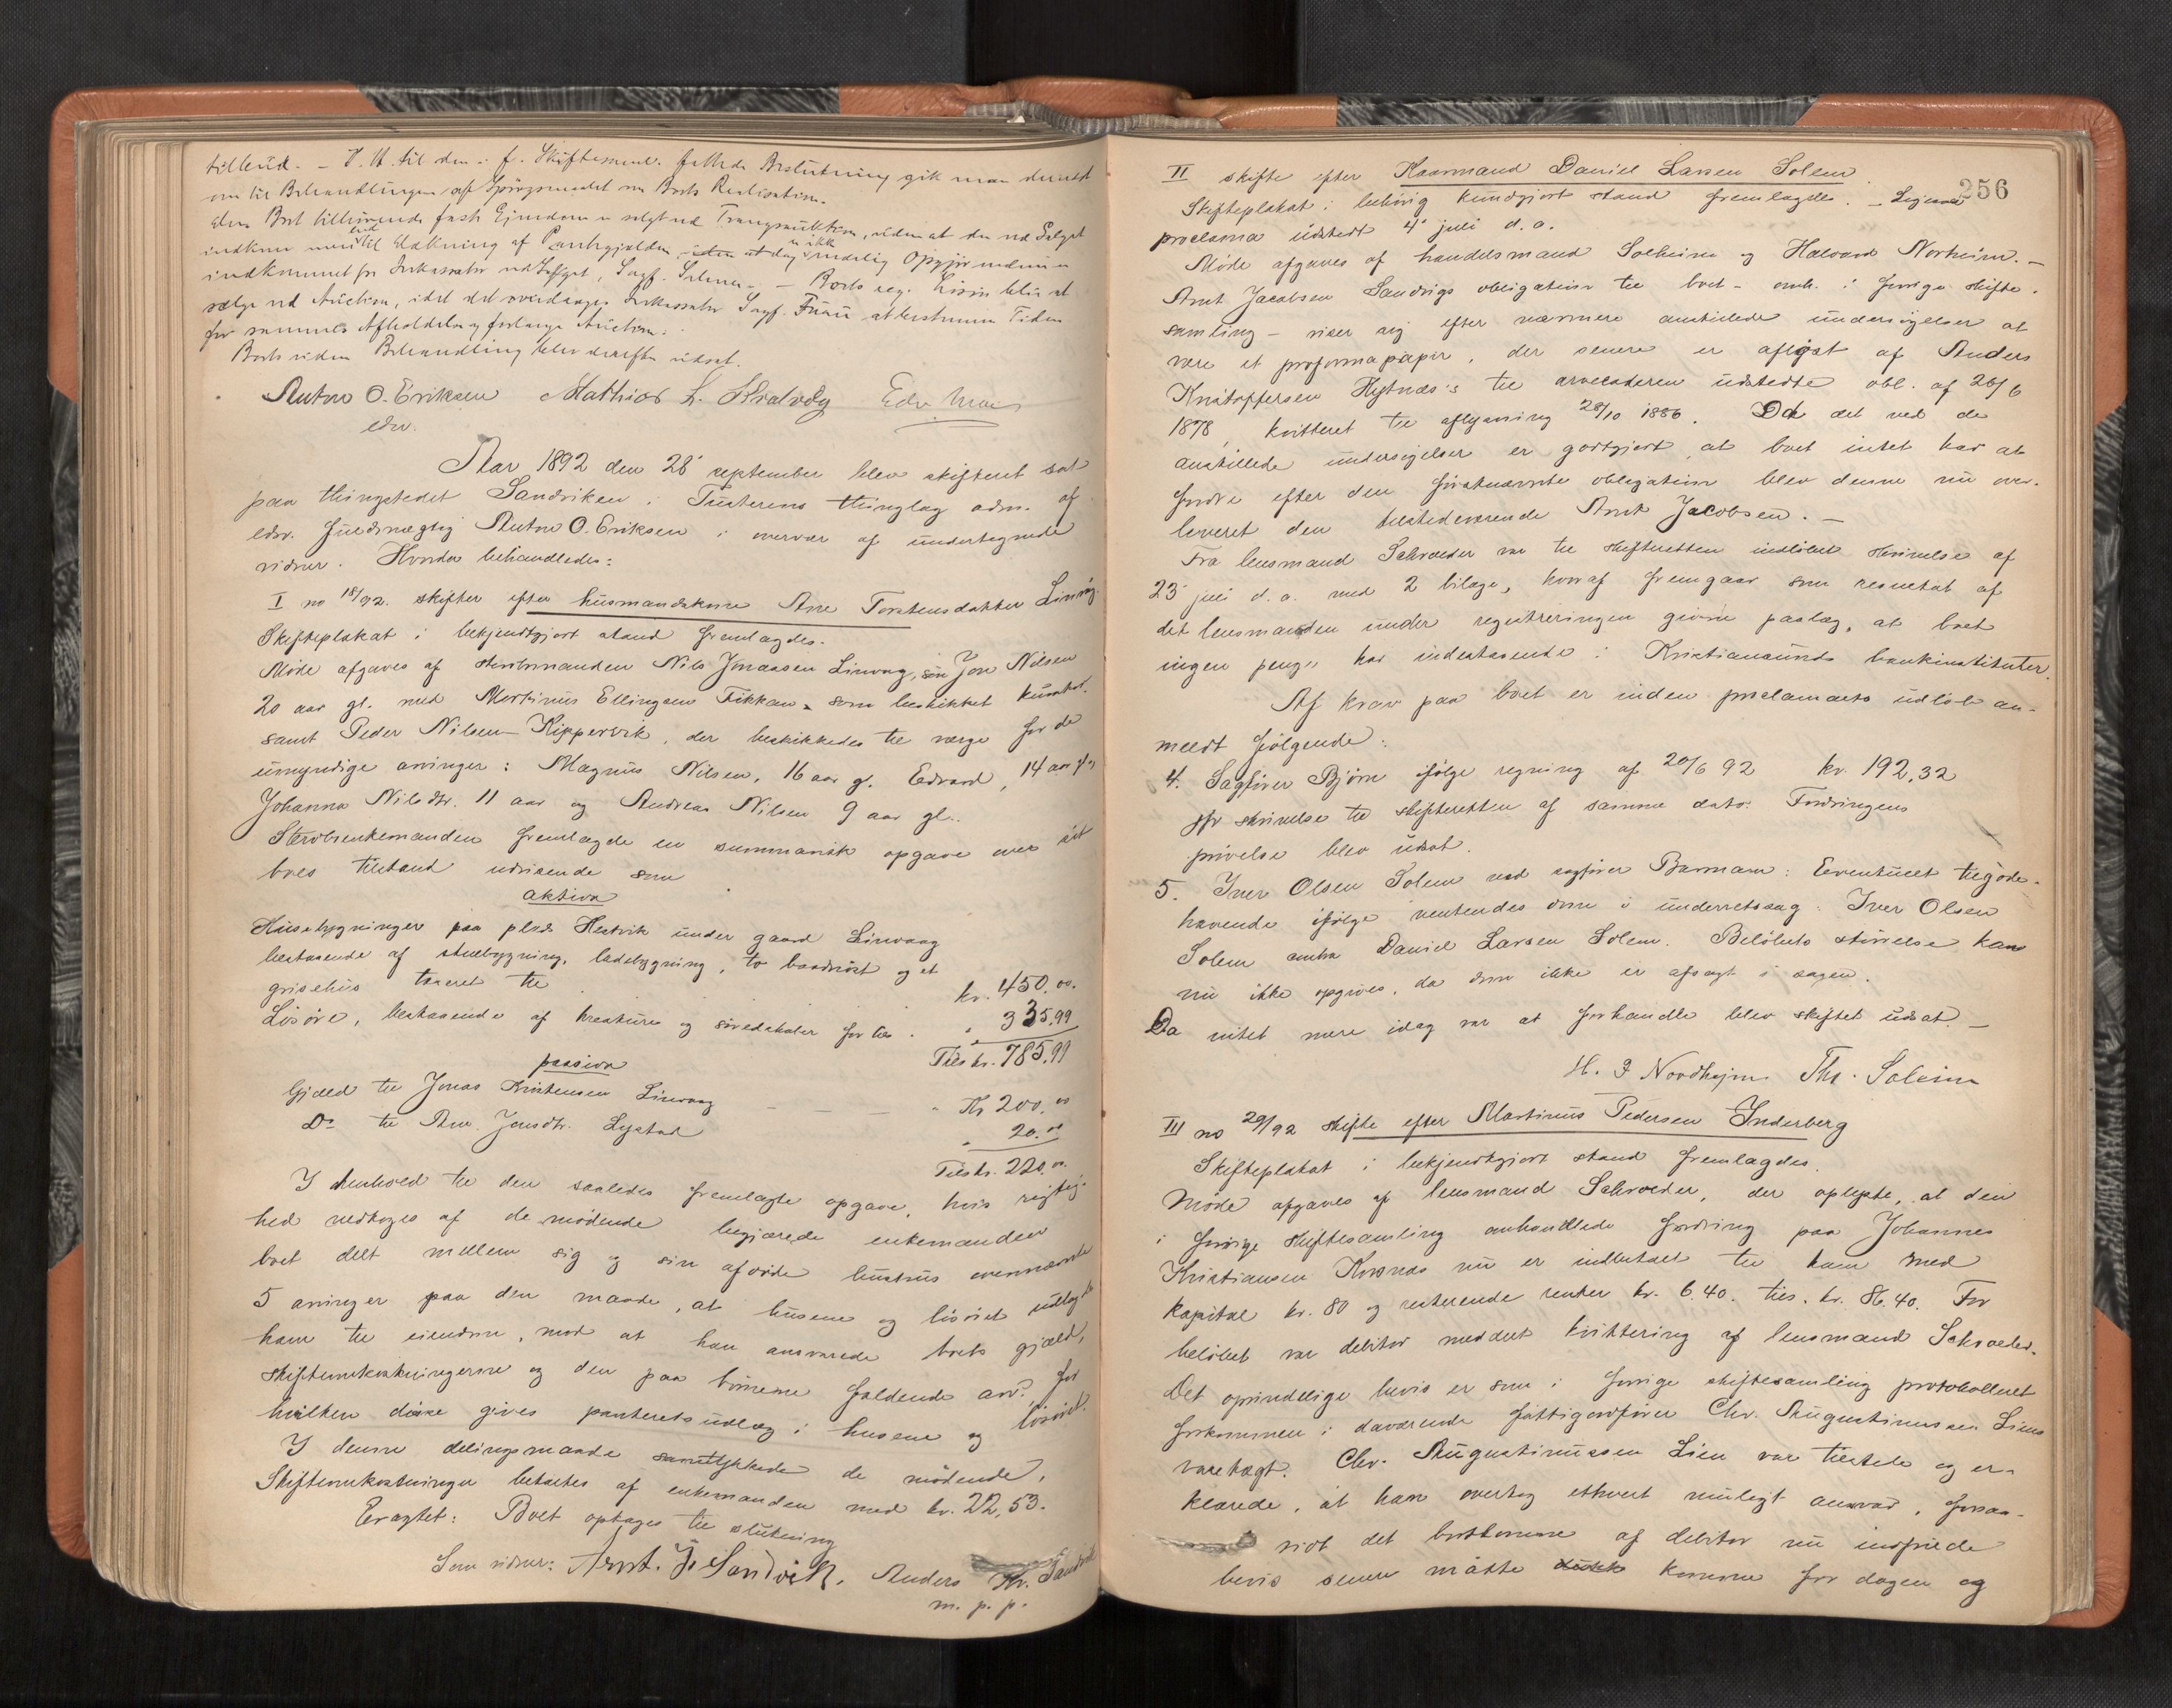 tilbud. – I. H. til den i f. Skiftesaml. fattede Beslutning gik man derved
om til Behandlingen af Spørgsmaalet om Boets Realisation.
Den Boet tilhørende faste Ejendom er solgt ved Tvangsauktion, uden at der ved Salget
indkom mere end til Dækning af Pantegjælden, endelig Opgjør endnu er
indkommet fra Inkassator ved Salget, Sagf. – Boets
sælges ved Auction, idet det overdrages Inkassator Sagf. at bestemme Tiden
for sammes Afholdelse og forlange Auction.
Boets videre Behandling blev derefter udsat.
Anton O. Eriksen Mathias L.
edsv.
Aar 1892 den 28' september blev skifteret sat
paa thingstedet Sandviken i Tusterens thinglag adm. af
edsv. fuldmægtig Anton O. Eriksen i overvær af undertegnede
vidner. Hvorda behandledes:
I no 18/92. skifter efter husmandskone Ane Torstensdatter Linvåg
Skifteplakat i bekjendtgjort stand fremlagdes.
Møde afgaves af Nils Jonassen Linvåg, søn Jon Nilsen
20 aar gl. med Martinus Ellingsen Fikkan, som beskikket kurator
samt Peder Nilsen Kippervik, der beskikkedes til værge for de
umyndige arvinger: Magnus Nilsen, 16 aar gl. Edvard, 14 aar gl.
Johanna Nilsdtr. 11 aar og Andreas Nilsen 9 aar gl.
Stervbsenkemanden fremlagde en summarisk opgave over sit
boes tilstand udvisende som
aktiva
Husebygninger paa plads Hestvik under gaard Linvaag
bestaaende af stuebygning, ladebygning, to baadnøst og et
grisehus taxeret til kr. 450.00.
Løsøre, bestaaende af kreature og søredskaber for tils. " 335,99
Tils kr. 785,99
passiva
Gjæld til Jonas Kristensen Linvaag – – – " Kr 200.00
Do til Ane Jonsdtr. Lystad " 20.00
Tils kr. 220.00
I henhold til den saaledes fremlagte opgave, hvis rigtig-
hed vedtoges af de mødende begjærede enkemanden
boet delt mellem sig og sin afdøde hustrus ovennævnte
5 arvinger paa den maade, at husene og løsøret udlagdes
ham til eiendom, mod at han ansvarede boets gjæld,
skifteomkostningerne og den paa børnene faldende arv, for
hvilken disse gives panteretsudlæg i husene og løsøret.
I denne delingsmaade samtykkede de mødende.
Skifteomkostninger betaltes af enkemanden med kr. 22,53.
Eragtet: Boet optages til slutning
Som vidner: Arnt. J. Sandvik, Anders Kr. Sandvik
m. p. p.
256
II skifte efter Kaarmand Daniel Larsen Solem
Skifteplakat i behørig kundgjort stand fremlagdes. – Ligesaa
proclama udstedt 4' juli d. a.
Møde afgaves af handelsmand Solheim og Halvard Norheim. –
Arnt Jacobsen Sandvigs obligation til boet – omh. i forrige skifte-
samling – viser sig efter nærmere anstillede undersøgelser at
være et proformapapir, der senere er afløst af Anders
Kristoffersen Hestnæs's til arveladeren udstedte obl. af 26/6
1878, kvitteret til aflysning 28/10 1886. Da det ved de
anstillede undersøgelser er godtgjort, at boet intet har at
fordre efter den førstnævnte obligation blev denne nu over-
leveret den tilstedeværende Arnt Jacobsen. –
Fra lensmand Schrøder var til skifteretten indløbet skrivelse af
23' juli d. a. med 2 bilage, hvoraf fremgaar som resultat af
det lensmanden under registreringen givne paalæg, at boet
ingen penge har indestaaende i Kristianssunds bankinstituter.
Af krav paa boet er inden proclamaets udløb an-
meldt følgende:
4. Sagfører Bjørn ifølge regning af 20/6 92 kr. 192,32
jfr skrivelse til skifteretten af samme dato. Fordringens
prøvelse blev udsat.
5. Iver Olsen Solem ved sagfører Barmann: Eventuelt tilgode-
havende ifølge ventendes dom i underretssag. Iver Olsen
Solem contra Daniel Larsen Solem. Beløbets størrelse kan
nu ikke opgives, da dom ikke er afsagt i sagen.
Da intet mere idag var at forhandle blev skiftet udsat. –
H. I Nordhejm. Thr. Soleim
III no 20/92 skifte efter Martinus Pedersen Inderberg
Skifteplakat i bekjendtgjort stand fremlagdes.
Møde afgaves af lensmand Schrøder, der oplyste, at den
i forrige skiftesamling omhandlede fordring paa Johannes
Kristiansen Korsnæs nu er indbetalt til ham med
kapital kr. 80 og resterende renter kr. 6.40. tils. kr. 86.40. For
beløbet var debitor meddelt kvittering af lensmand Schroeder.
Det oprindelige bevis er som i forrige skiftesamling protokolleret
forkommen i daværende fattigordfører Chr. Augustinussen Liens
varetægt. Chr. Augustinussen Lien var tilstede og er-
klærede, at han overtog ethvert muligt ansvar, forsaa-
vidt det bortkomne af debitor nu indfriede
bevis senere måtte komme for dagen og